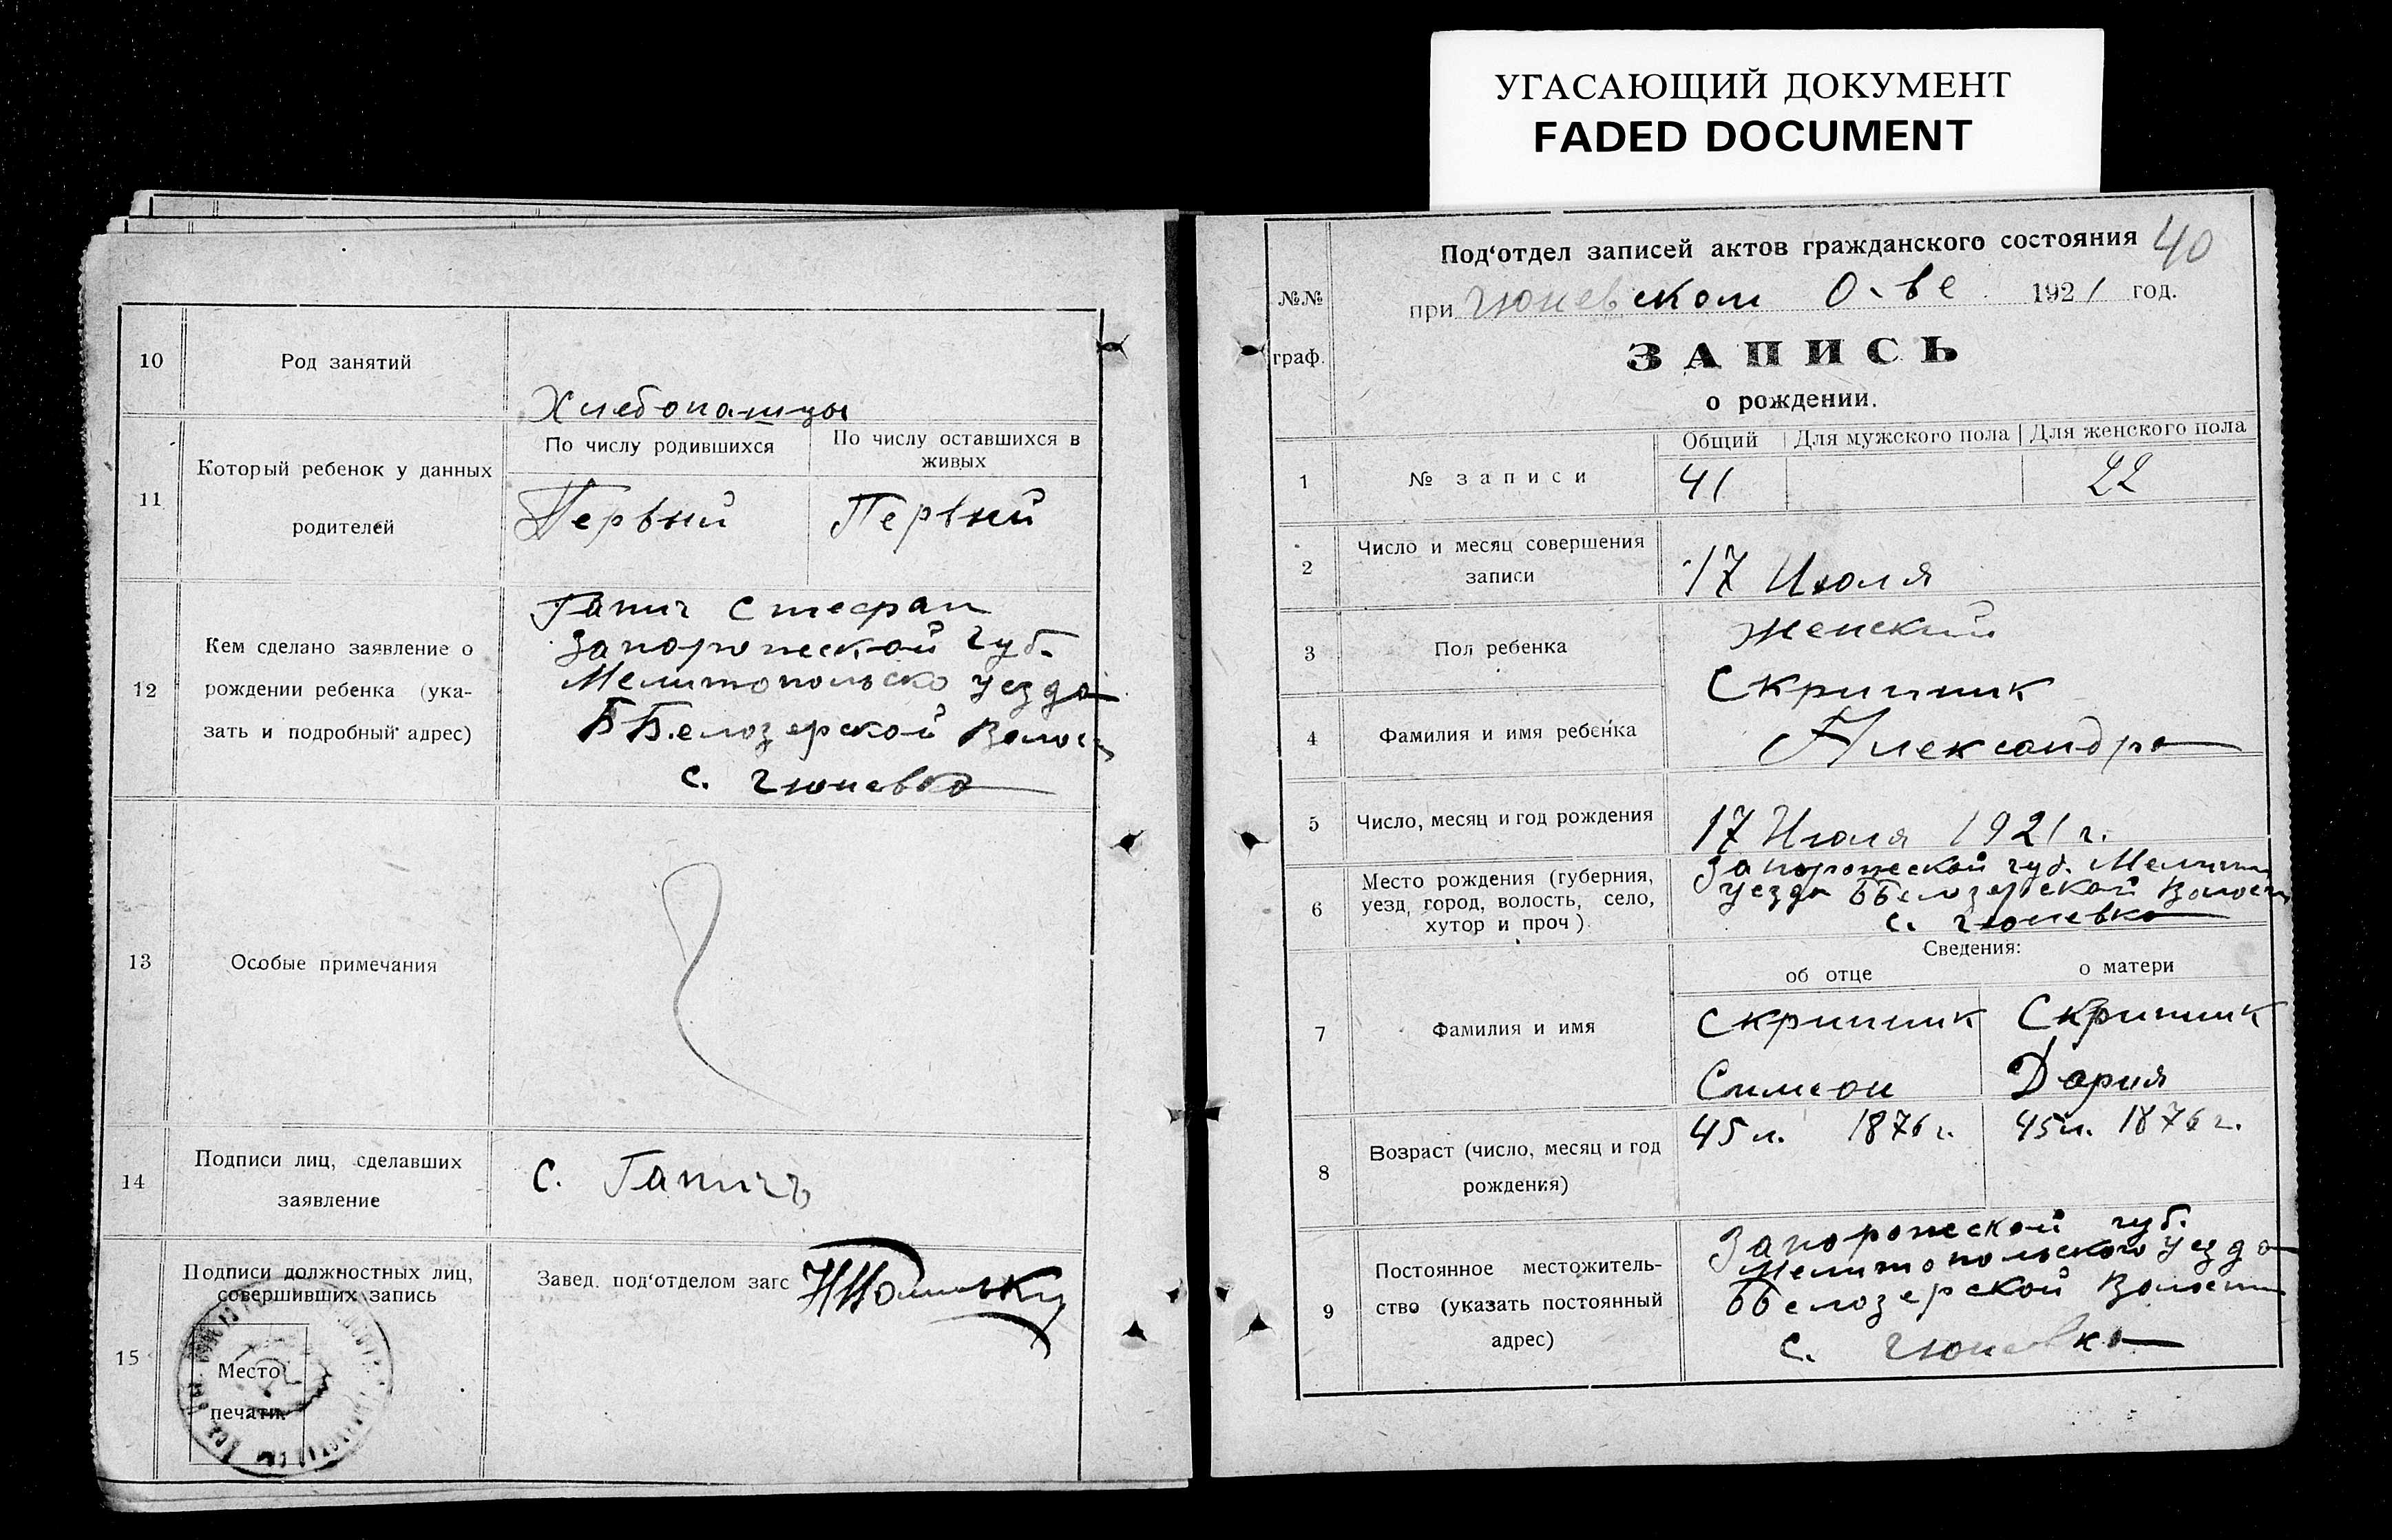 УГАСАЮЩИЙ ДОКУМЕНТ
FADED DOCUMENT
10
Род занятий
Хлебопашцы
11
Который ребенок у данных
родителей
По числу родившихся
По числу оставшихся в
живых
Первый
Первый
12
Кем сделано заявление о
рождении ребенка (ука-
зать и подробный адрес)
Гапич Стефан
Запорожеской губ.
Мелитопольско уезда
ББелозерской Волост
с. Гюневка
13
Особые примечания
14
Подписи лиц, сделавших
заявление
С. Гапичъ
15
Подписи должностных лиц,
совершивших запись
Место
печати.
Завед. под‘отделом загс
40
№№
граф.
Под‘отдел записей актов гражданского состояния
при Гюневском О-ве 1921 год.
ЗАПИСЬ
о рождении.
1
№ записи
Общий
Для мужского пола
Для женского пола
41
22
2
Число и месяц совершения
записи
17 Июля
3
Пол ребенка
Женский
4
Фамилия и имя ребенка
Скрипник
Александра
5
Число, месяц и год рождения
17 Июля 1921 г.
6
Место рождения (губерния,
уезд, город, волость, село,
хутор и проч)
Запорожеской губ. Мелитоп
уезда ББелозерской Волости
с. Гюневка
Сведения:
об отце
о матери
7
Фамилия и имя
Скрипник
Симеон
Скрипник
Дария
8
Возраст (число, месяц и год
рождения)
45 л. 1876 г.
45 л. 1876 г.
9
Постоянное местожитель-
ство (указать постоянный
адрес)
Запорожеской губ.
Мелитопольского уезда
ББелозерской Волости
с. Гюневка